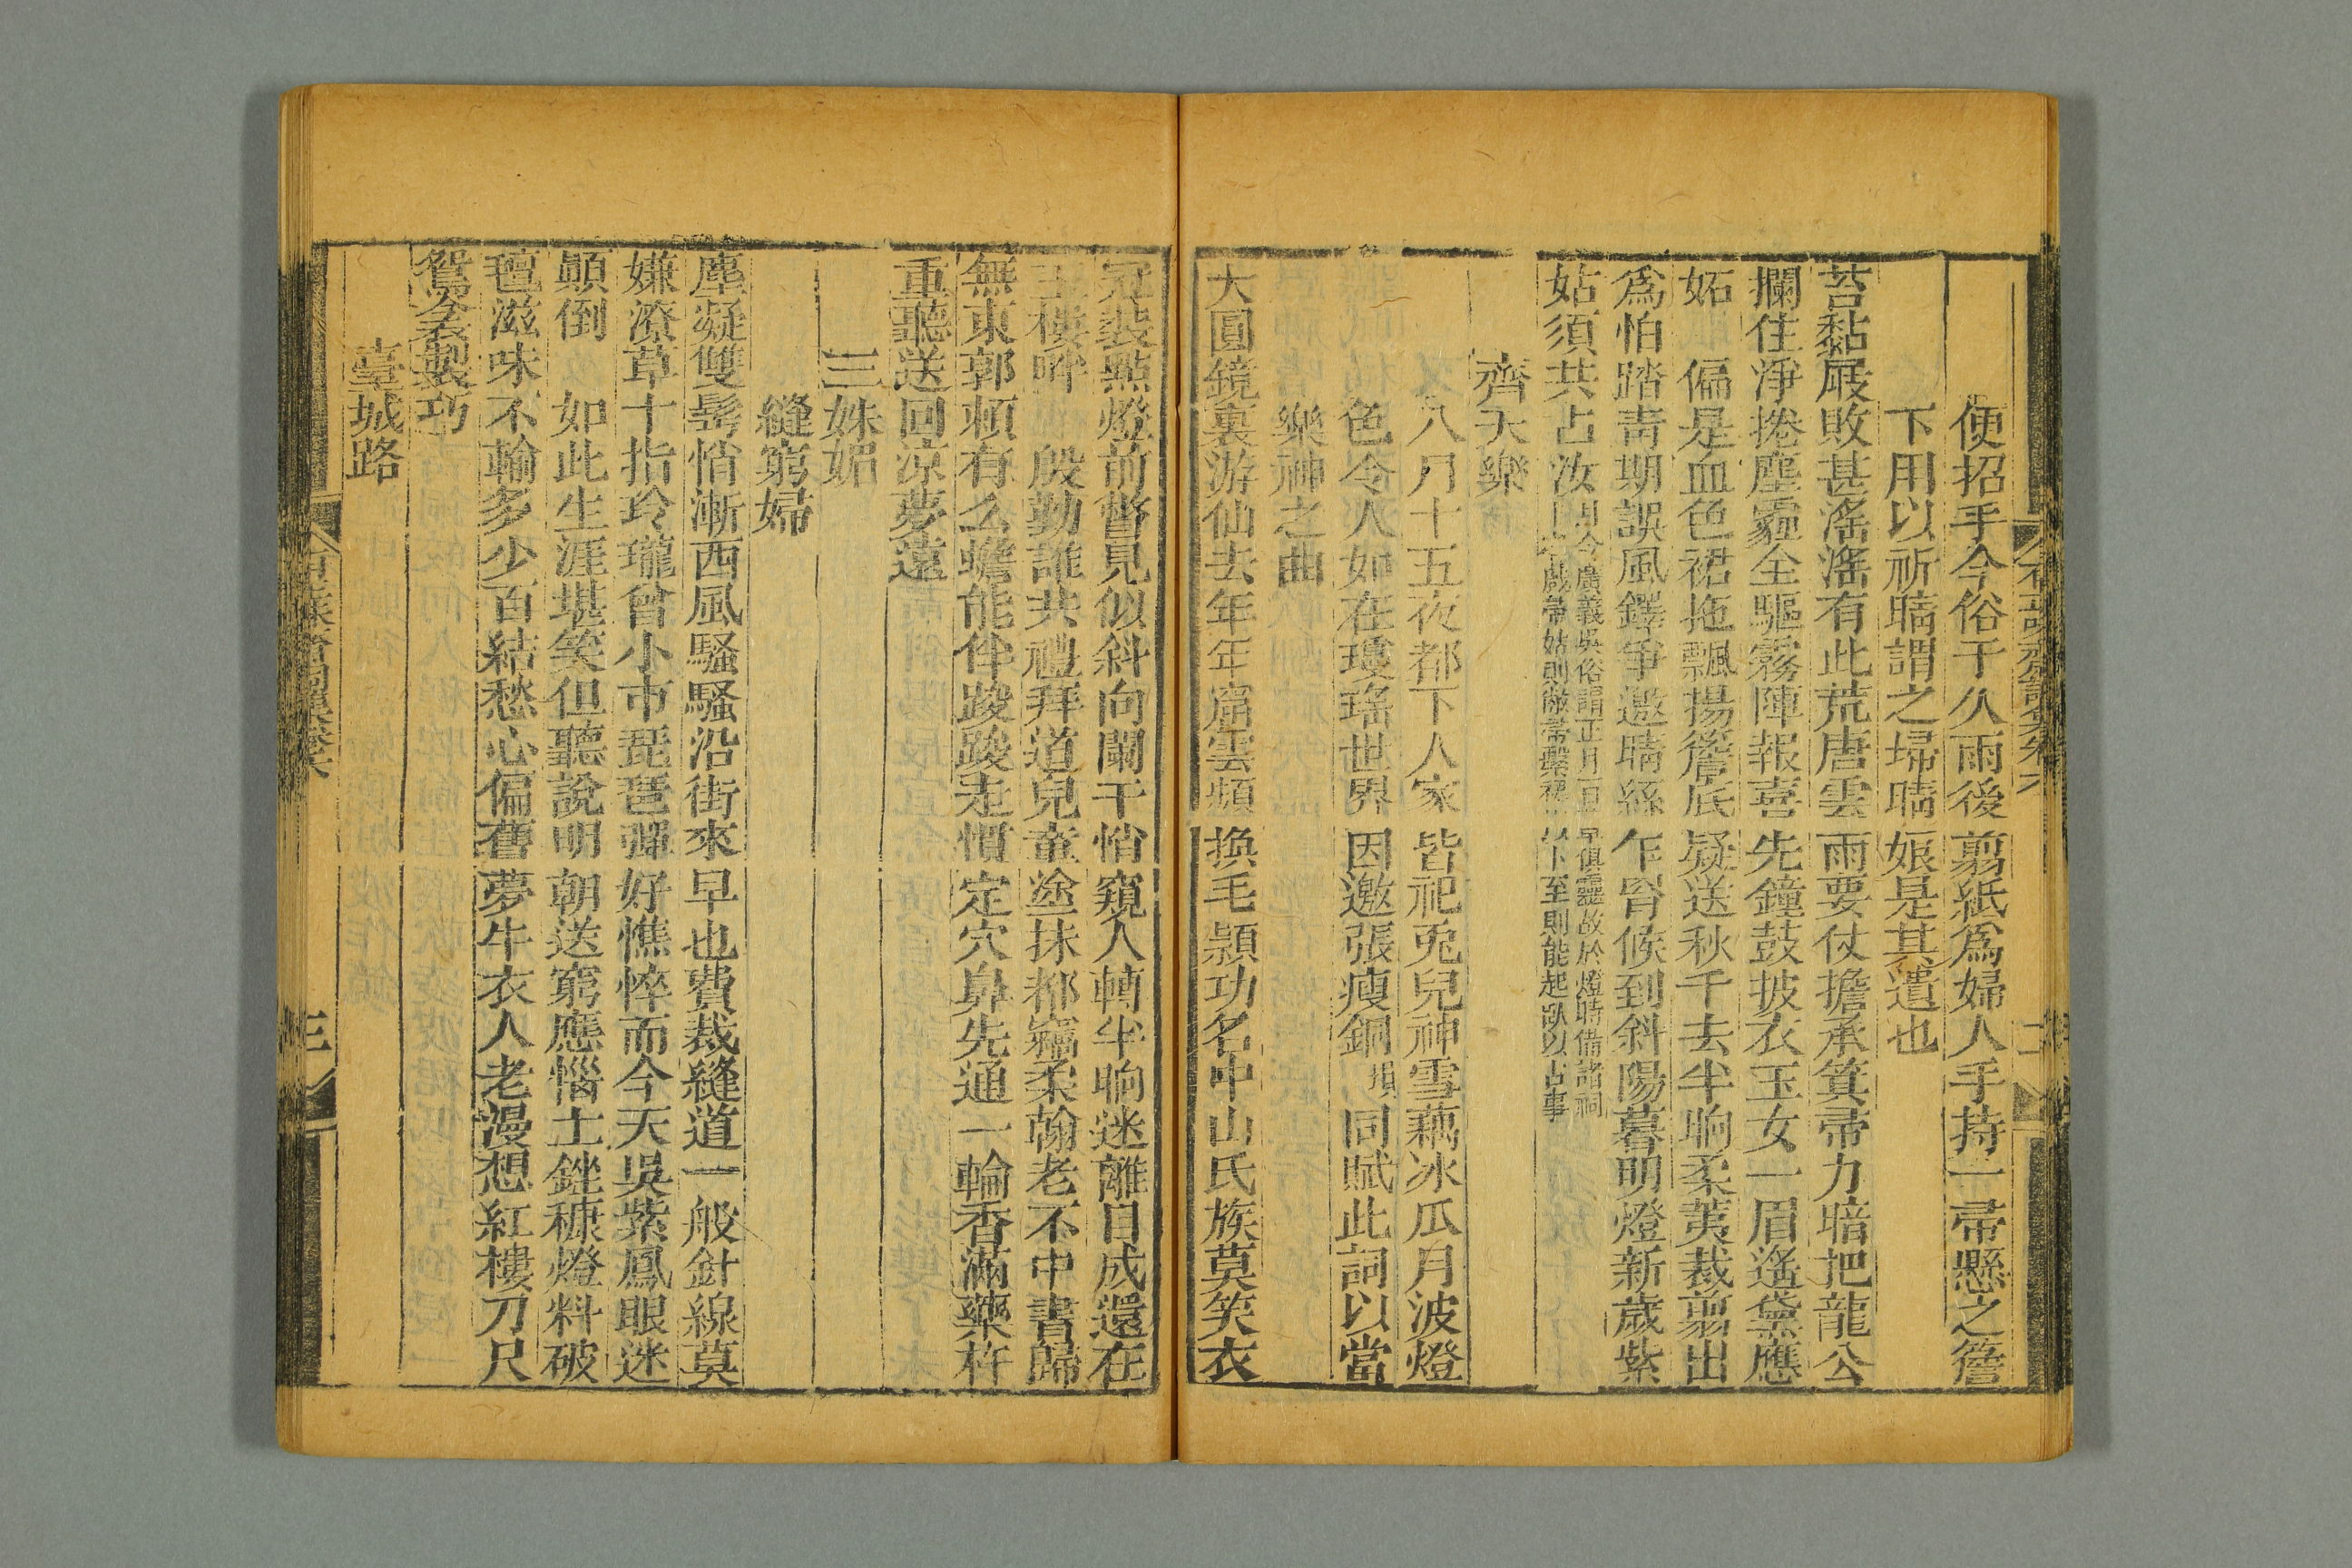 便招手今俗于久雨後剪紙爲婦人手持一帚懸之簷
下用以祈晴謂之埽晴娘是其遺也
苔黏屐敗甚滛滛有此荒唐雲雨要仗擔承箕帚力暗把龍公
攔住淨捲塵霾全驅霧陣報喜先鐘鼓披衣玉女一眉遙黛應
妬 偏是血色裙拖飄揚簷底疑送秋千去半晌柔荑裁剪出
爲怕踏靑期誤風鐸爭邀晴絲乍胃候到斜陽暮明燈新歲紫
姑須共占汝
月令廣義吳俗謂正月百草俱靈故於燈時備諸祠
卜戲帚姑則敝帚繫裙以卜至則能起臥以占事
齊天樂
八月十五夜都下人家皆祀兎兒神雪藕冰瓜月波燈
色令人如在瓊瑤世界因邀張瘦銅塤同賦此詞以當
樂神之曲
大圓鏡裏游仙去年年窟雲頻換毛潁功名中山氏族莫笑衣
冠裝點燈前瞥見似斜向闌干悄窺人轉半晌迷離目成還在
玉樓畔 殷勤誰共禮拜道兒童塗抹都寫柔翰老不中書歸
無東郭頼有么蟾能伴踆踆走慣定穴鼻先通一輪香滿藥杵
重聽送回涼夢遠
三姝媚
縫窮婦
塵凝雙髩悄漸西風騷騷沿街來早也費裁縫道一般針線莫
嫌潦草十指玲瓏曾小市琵琶彈好憔悴而今天吳紫鳳眼迷
顚倒 如此生涯堪笑但聽說明朝送窮應惱土銼穅燈料破
氊滋味不輸多少百結愁心偏舊夢牛衣人老漫想紅樓刀尺
鴛衾製巧
臺城路
三